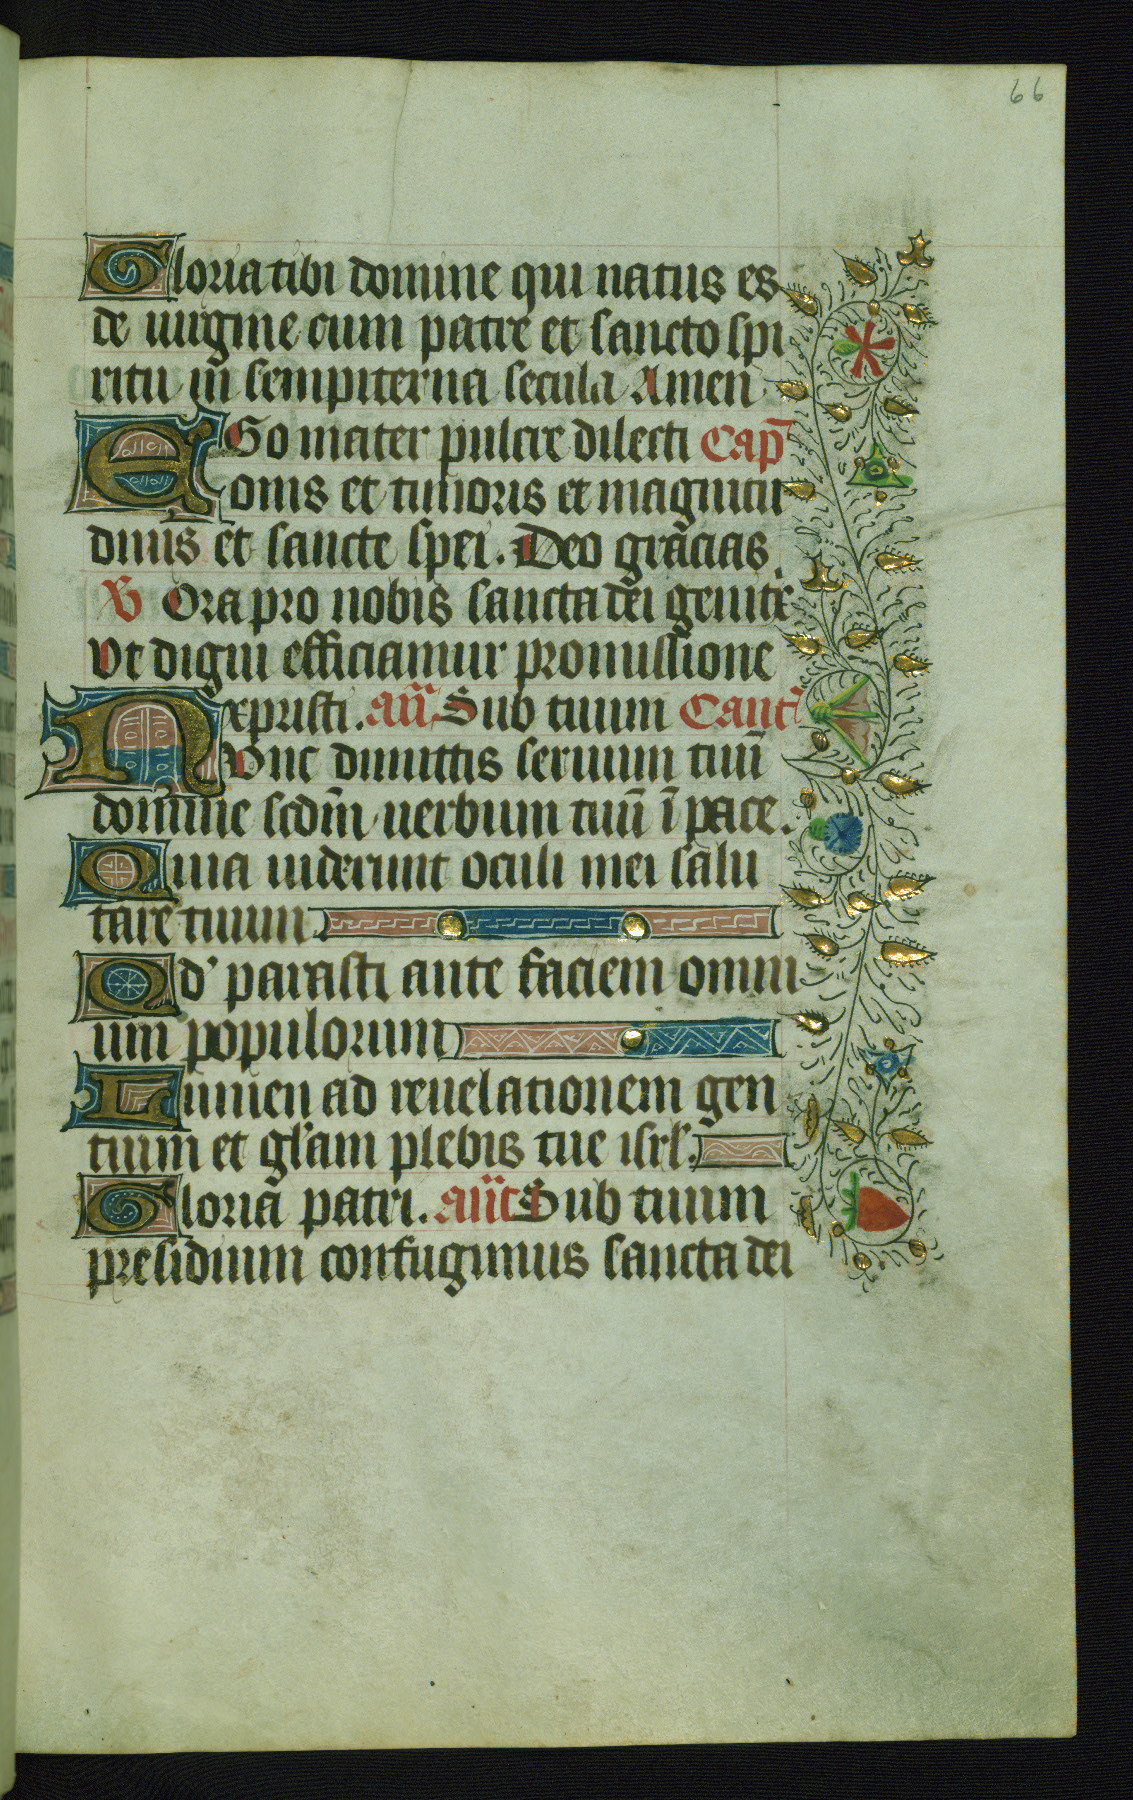 66
Gloria tibi domine qui natus es
de uirgine cum patre et sancto spi
ritu in sempiterna secula Amen
EGo mater pulcre dilecti Cap̄
onis et timoris et magnitu
dinis et sancte spei. Deo grācias
℣ Ora pro nobis sancta dei genitẋ
Vt digni efficiamur promissione
xpristi. an̄ Sub tuum Cant
NVnc dimittis seruum tuū
domine scdm̄ uerbum tuū ī pace.
Quia uiderunt oculi mei salu
tare tuum
Qd' parasti ante faciem omni
um populorum
Lumen ad reuelationem gen
tium et gl'am plebis tue isrl'.
Gloria patri. an̄t Sub tuum
presidium confugimus sancta dei